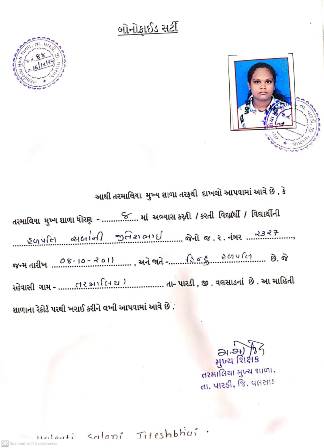 બોનોફાઈડ સર્ટી
આથી તરમાલિયા મુખ્ય શાળા તરફથી દાખલો આપવામાં આવે છે , કે
તરમાલિયા મુખ્ય શાળા ધોરણ - ૮ માં અભ્યાસ કરતી / કરતી વિદ્યાર્થી / વિદ્યાર્થીની
હળપતિ સલોની જીતેશભાઈ જેનો જ . ર. નંબર ૨૩૨૧
જન્મ તારીખ 08-10-2011 , અને જાતે - હિન્દુ હળપતિ છે. જે
રહેવાસી ગામ - તરમાલિયા તા- પારડી, જી . વલસાડનાં છે . આ માહિતી
શાળાના રેકોર્ડ પરથી ખરાઈ કરીને લખી આપવામાં આવે છે.
મુખ્ય શિક્ષક
તરમાલિયા મુખ્ય શાળા,
તા. પારડી, જિ. વલસાડ
Halpati Saloni Jiteshbhai